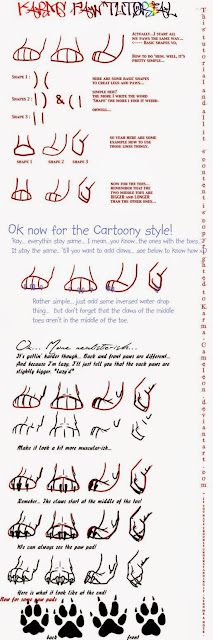 Karma's Paw Tutorial
Actually...I start all
my paws the same way...
<---- Basic shapes yo,
How to do 'hem, well, it's
pretty simple...
Shape 1
Shape 2
Shape 3
Here are some basic shapes
to creat legs and paws...
Simple huh?
The more I write the word
"shape" the more I find it weird.
Ohwell...
So yeah here are some
example how to use
those lines thingy.
Shape 1
Shape 2
Shape 3
Now for the toes...
Remember that the
two middle toes are
bigger and longer
than the other ones...
Ok now for the Cartoony style!
Yay... everythin stay same... I mean, you know, the ones with the toes...
It stay the same. 'till you want to add claws... see below to know how :p
Rather simple... just add some inversed water drop
thing... but don't forget that the claws of the middle
toes aren't in the middle of the toe.
Ok... More realistic-ish...
It's gettin' harder though... Back and front paws are different...
And because I'm lazy, I'll just tell you that the back paws are
slightly bigger. *lazy'd*
Make it look a bit more muscular-ish...
Remeber... The claws start at the middle of the toe!
We can always see the paw pad!
Here is what it look like at the end!
Now for some paw pads
back
front
This tutorial and all it's content is copyrighted to Karma-Cameleon.deviantart.com